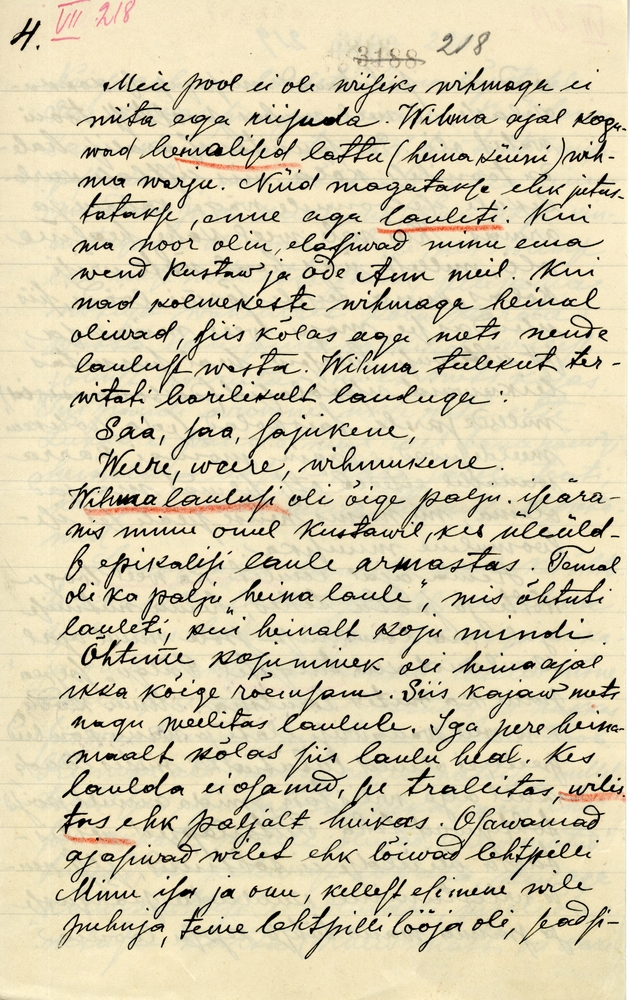 4. VII 218
3188 218
Meie pool ei ole wiisiks wihmaga ei
niita ega riisuda. Wihma ajal kogu-
wad heinalised lattu (heina küüni) wih-
ma warju. Nüid magatakse ehk jutus-
tatakse, enne aga lauleti. Kui
ma noor olin, elasiwad minu ema
wend Kustaw ja õde Ann meil. Kui
nad kolmekeste wihmaga heinal
oliwad, siis kõlas aga mets nende
laulust wasta. Wihma tulekut ter-
witati harilikult lauluga:
Sáa, sáa, sajukene,
Weere, weere, wihmukene.
Wihma laulusi oli õige palju. iseära-
nis minu onul Kustawil, kes üleüld-
s epikalisi laule armastas. Temal
oli ka palju heina laule", mis õhtuti
lauleti, küi heinalt koju mindi
Õhtune kojuminek oli heinaajal
ikka kõige rõemsam. Siis kajaw mets
nagu meelitas laulule. Iga pere heina-
maalt kõlas siis laulu heal. Kes
laulda ei osanud, se trallitas, wilis-
tas ehk paljalt huikas. Osawamad
ajasiwad wilet ehk lõiwad lehtpilli
Minu isa ja onu, kellest esimene wile
puhuja, teine lehtpilli lööja oli, seadsi-